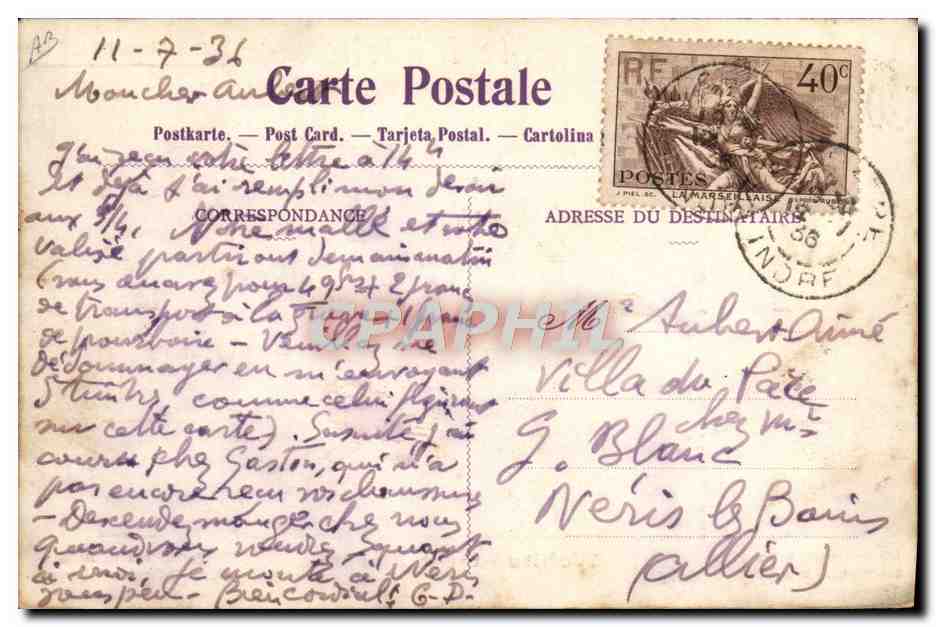 AB
11-7-36
Mon cher Aubert
Carte Postale
Postkarte. — Post Card. — Tarjeta Postal. — Cartolina
RF
40c
POSTES
J. PIEL. SC. LA MARSEILLAISE
J'ai reçu votre lettre à 14 h
Et déjà j'ai rempli mon devoir
CORRESPONDANCE
ADRESSE DU DESTINATAIRE
aux 3/4. Notre malle et votre
valise partiront demain matin
(vous en avez pour 4 95 + 2 francs
de transport à la
de pourboire - Veuillez me
dédommager en m'envoyant
5 timbres comme celui figurant
sur cette carte). Ensuite j'ai
couru chez Gaston, qui n'a
pas encore reçu vos chaussures
- Descendez manger chez nous
quand vous voudrez quant
à moi, je monte à Néris
sous peu - Bien cordial. G-D.
CPAPHIL
36
INDRE
Mr Aubert Aimé
Villa du Parc
chez Mr
G. Blanc
Néris les Bains
(Allier)